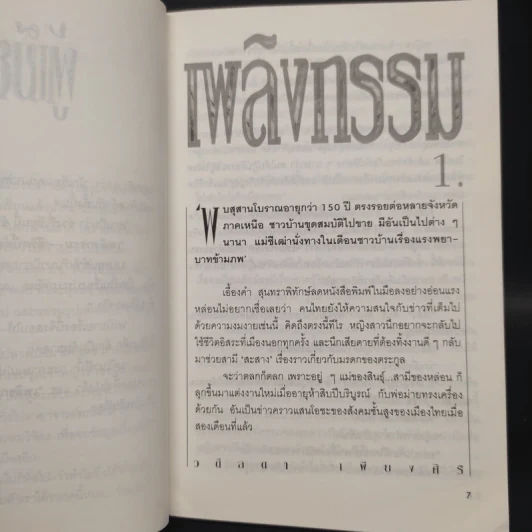 เพลิงกรรม
1.
'พบสุสานโบราณอายุกว่า 150 ปี ตรงรอยต่อหลายจังหวัด
ภาคเหนือ ชาวบ้านขุดสมบัติไปขาย มีอันเป็นไปต่าง ๆ
นานา แม่ชีเฒ่านั่งทางในเตือนชาวบ้านเรื่องแรงพยา-
บาทข้ามภพ'
เอื้องคำ สุนทราพิทักษ์ลดหนังสือพิมพ์ในมือลงอย่างอ่อนแรง
หล่อนไม่อยากเชื่อเลยว่า คนไทยยังให้ความสนใจกับข่าวที่เต็มไป
ด้วยความงมงายเช่นนี้ คิดถึงตรงนี้ทีไร หญิงสาวนึกอยากจะกลับไป
ใช้ชีวิตอิสระที่เมืองนอกทุกครั้ง และนึกเสียดายที่ต้องทิ้งงานดี ๆ กลับ
มาช่วยสามี 'สะสาง' เรื่องราวเกี่ยวกับมรดกของตระกูล
จะว่าตลกก็ตลก เพราะอยู่ ๆ แม่ของสินธุ์...สามีของหล่อน ก็
ลุกขึ้นมาแต่งงานใหม่เมื่ออายุห้าสิบปีบริบูรณ์ กับพ่อม่ายทรงเครื่อง
ด้วยกัน อันเป็นข่าวคราวแสนโอชะของสังคมชั้นสูงของเมืองไทยเมื่อ
สองเดือนที่แล้ว
วดีลดา เพียงศิริ
7